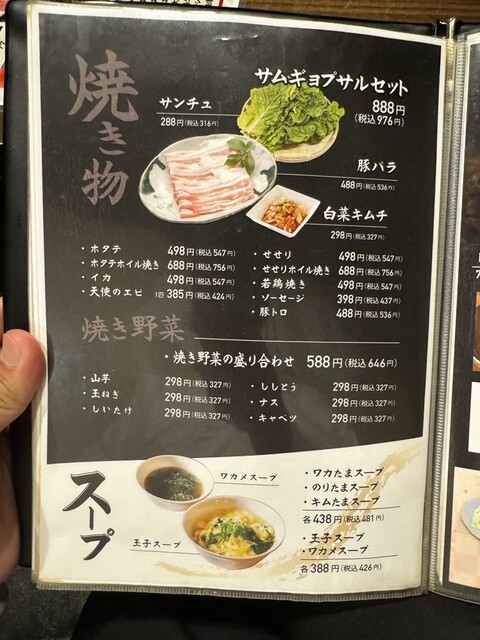 焼き物
サムギョプサルセット
888円
(税込976円)
サンチュ
288円(税込316円)
豚バラ
488円(税込536円)
白菜キムチ
298円(税込327円)
・ホタテ 498円(税込547円)
・ホタテホイル焼き 688円(税込756円)
・イカ 498円(税込547円)
・天使のエビ 1匹 385円(税込424円)
・せせり 498円(税込547円)
・せせりホイル焼き 688円(税込756円)
・若鶏焼き 498円(税込547円)
・ソーセージ 398円(税込437円)
・豚トロ 488円(税込536円)
焼き野菜
・焼き野菜の盛り合わせ 588円(税込646円)
・山芋 298円(税込327円)
・玉ねぎ 298円(税込327円)
・しいたけ 298円(税込327円)
・ししとう 298円(税込327円)
・ナス 298円(税込327円)
・キャベツ 298円(税込327円)
スープ
ワカメスープ
玉子スープ
・ワカたまスープ
・のりたまスープ
・キムたまスープ
各438円(税込481円)
・玉子スープ
・ワカメスープ
各388円(税込426円)